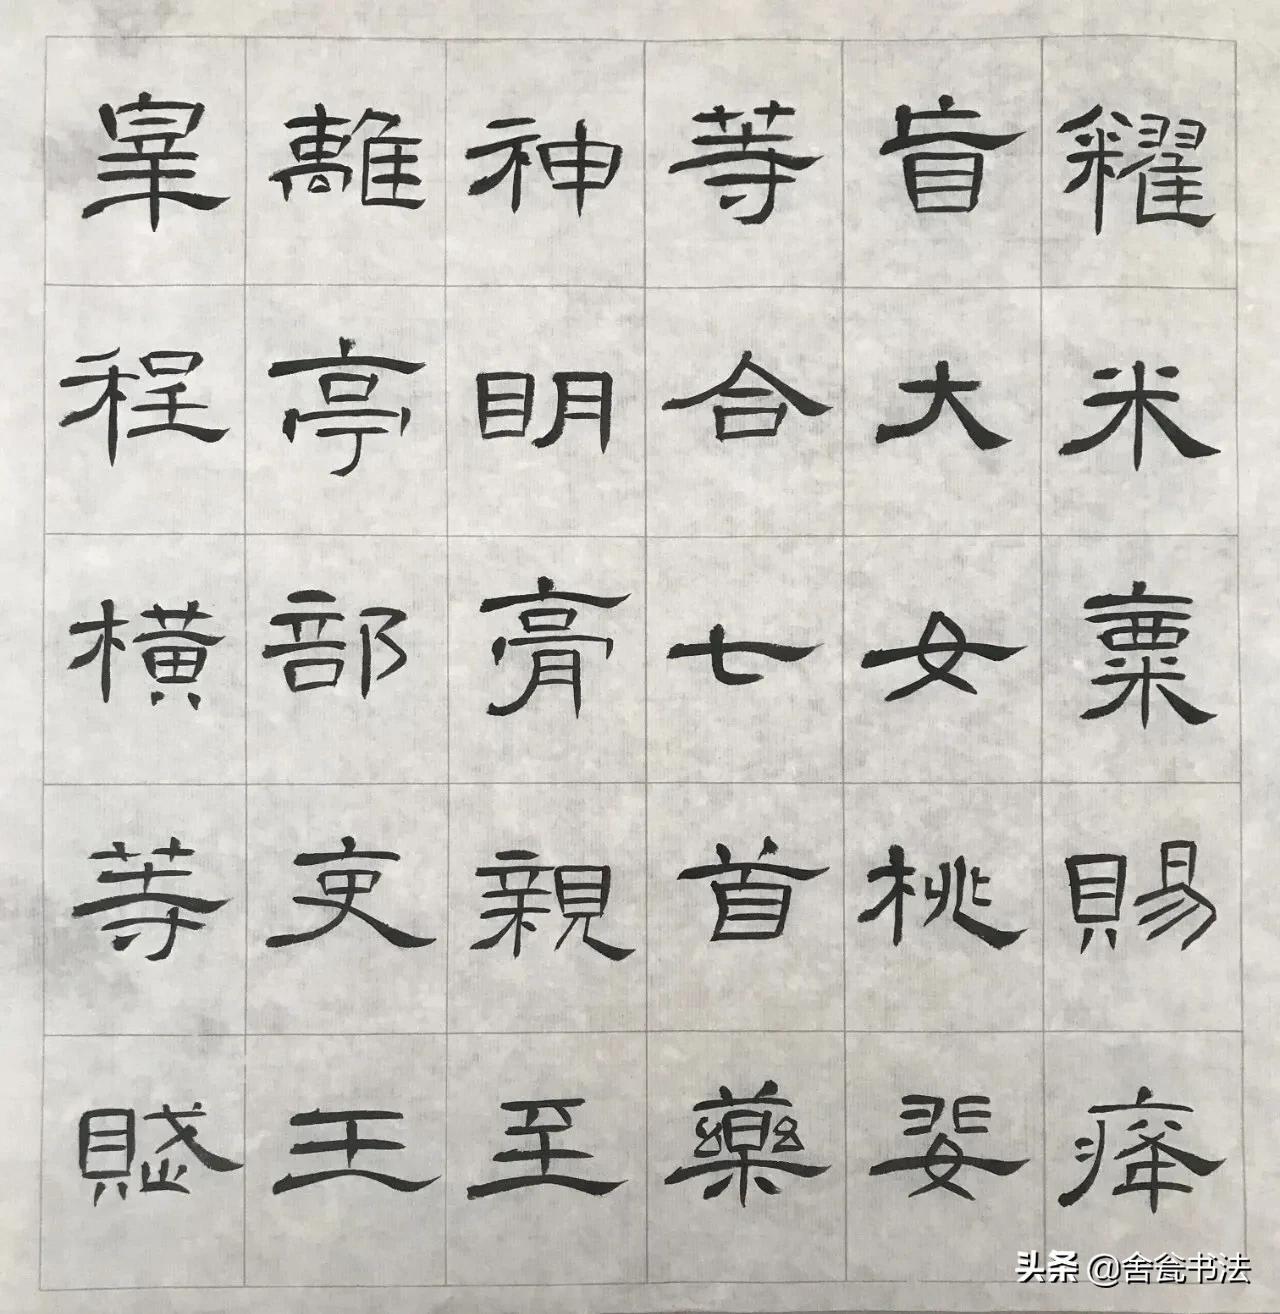 糴米粟賜癃
盲大女桃婓
等合七首藥
神明膏親至
離亭部吏王
睾程横等賦
头条 @舍瓮书法